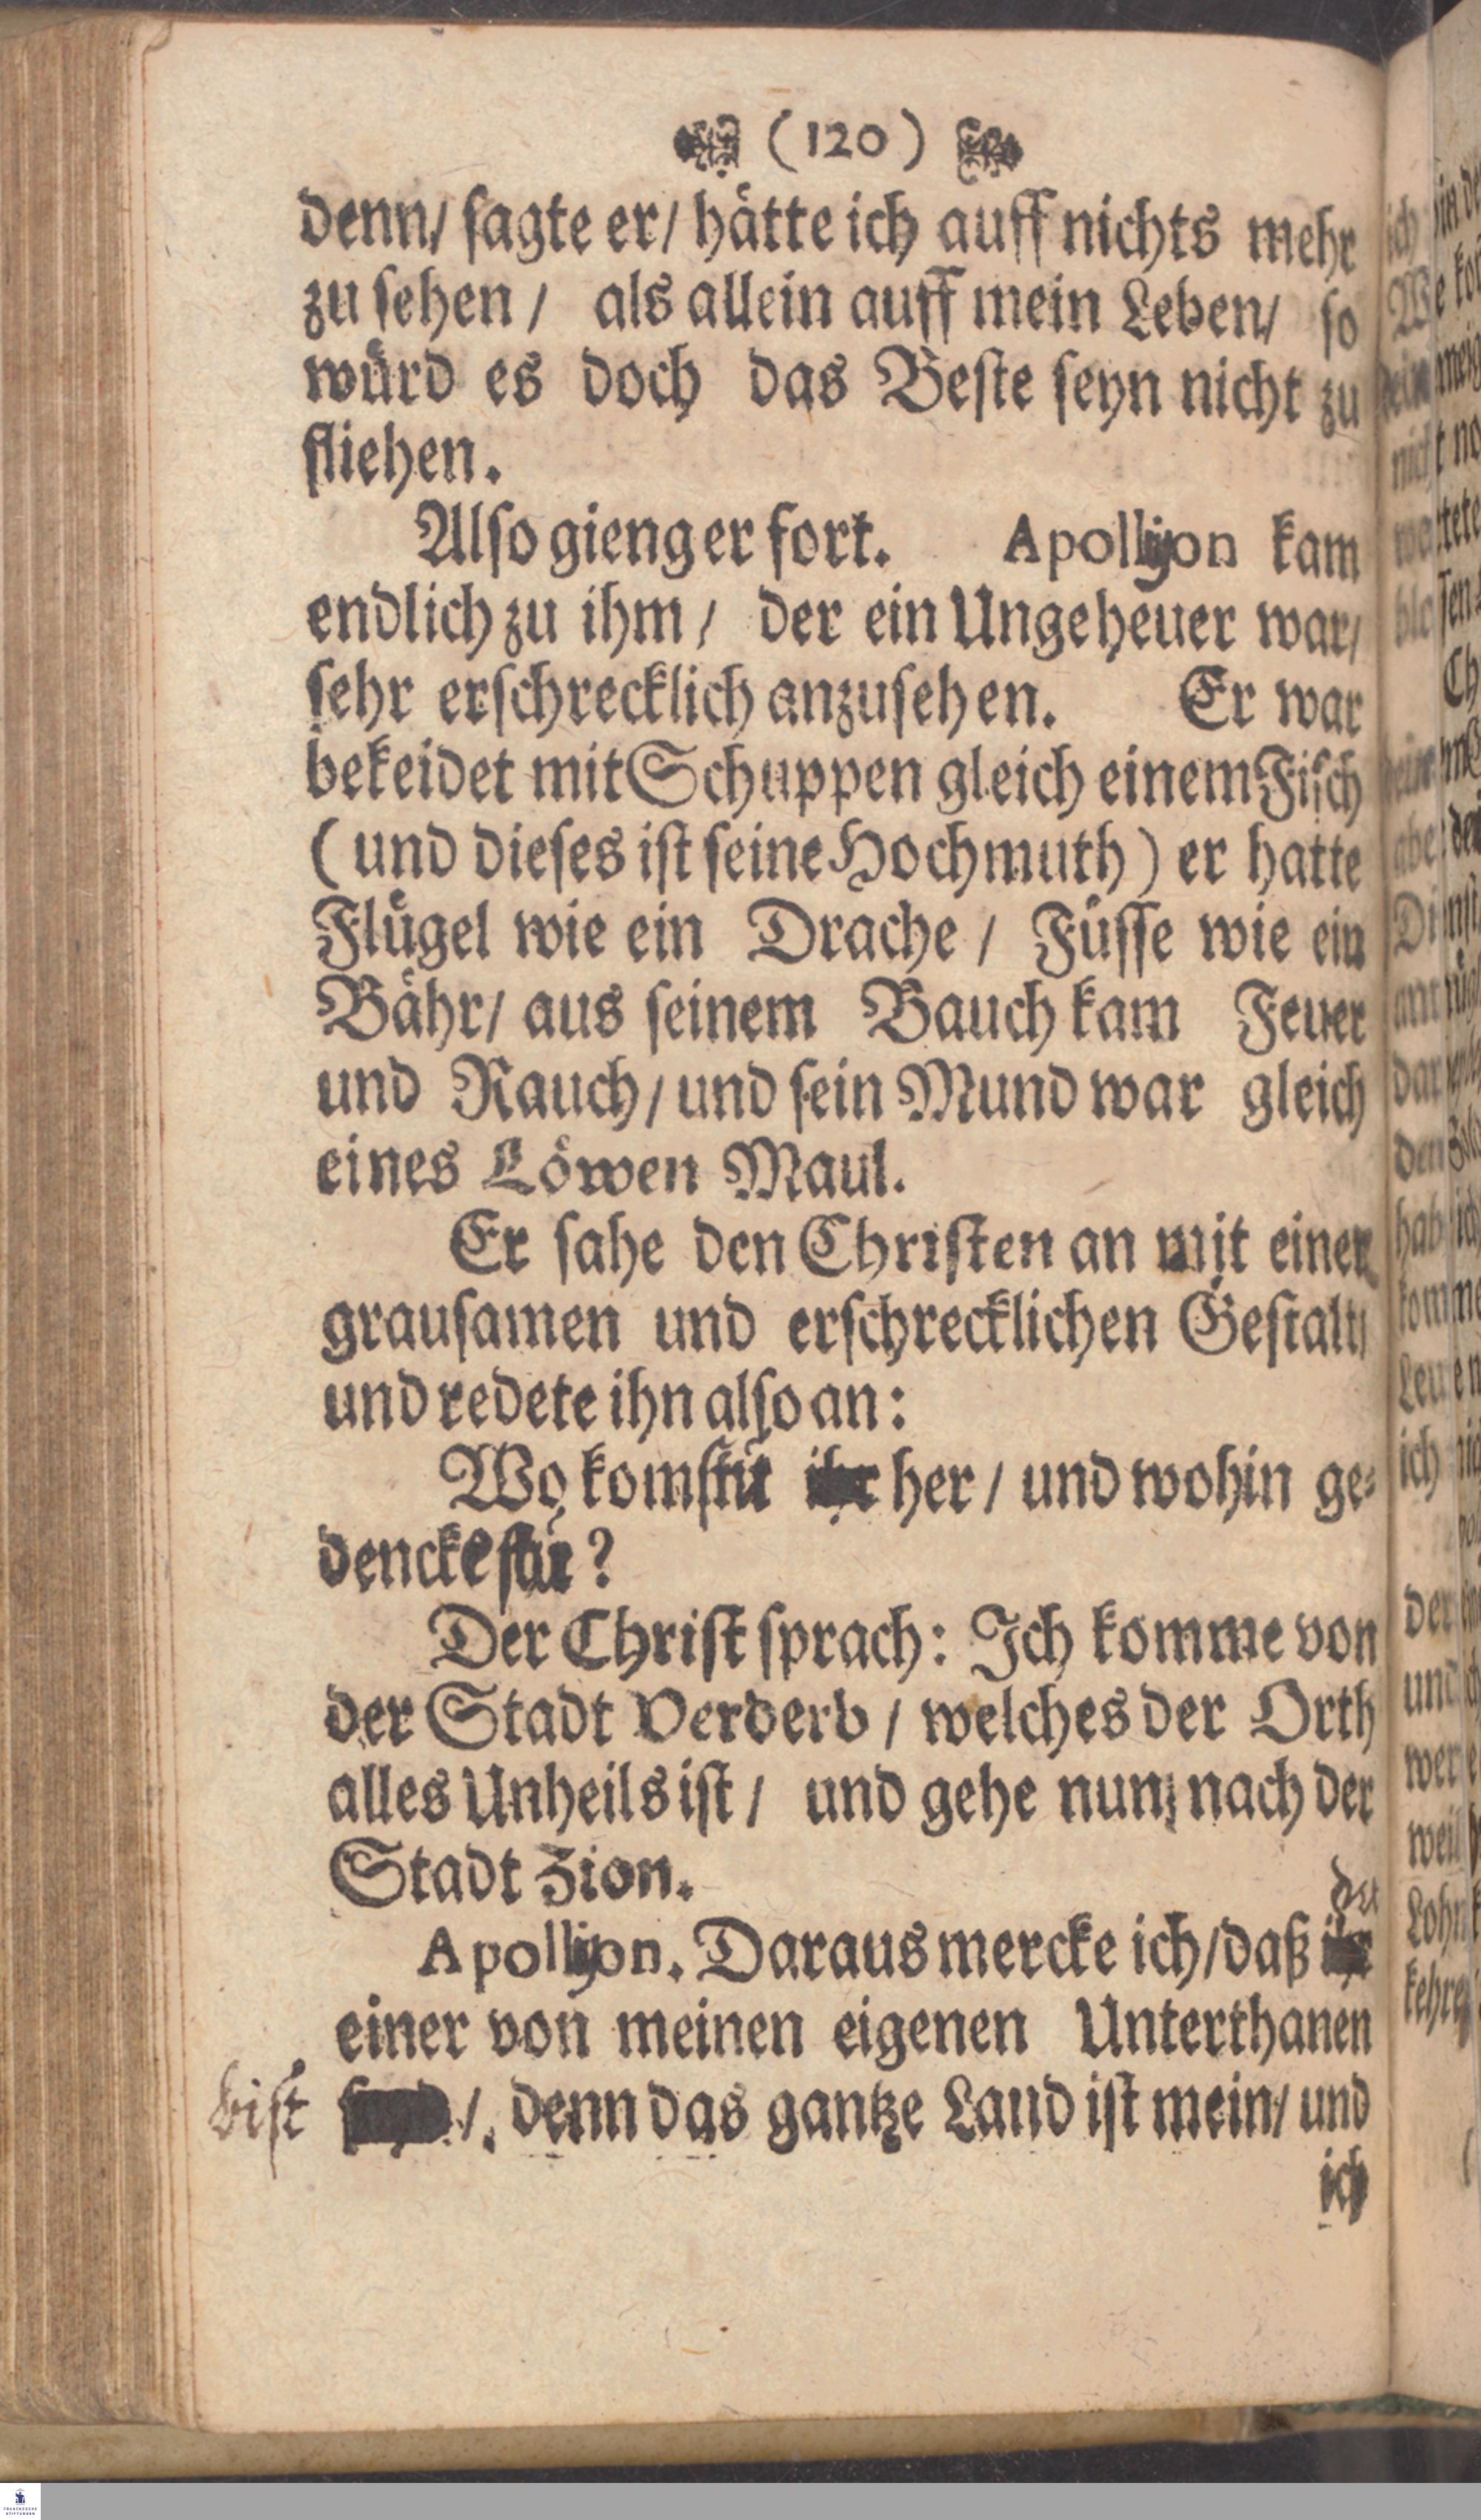 (120)
denn/ ſagte er/ hätte ich auff nichts mehr
zu ſehen / als allein auff mein Leben/ ſo
würd es doch das Beſte ſeyn nicht zu
fliehen.
Alſo gieng er fort. Apollyon kam
endlich zu ihm / der ein Ungeheuer war/
ſehr erſchrecklich anzuſehen. Er war
bekeidet mit Schuppen gleich einem Fiſch
( und dieſes iſt ſeine Hochmuth ) er hatte
Flügel wie ein Drache / Füſſe wie ein
Bähr/ aus ſeinem Bauch kam Feuer
und Rauch / und ſein Mund war gleich
eines Löwen Maul.
Er ſahe den Chriſten an mit einer
grauſamen und erſchrecklichen Geſtalt/
und redete ihn alſo an:
Wo komſtu her / und wohin ge⸗
denckeſtu?
Der Chriſt ſprach: Ich komme von
der Stadt Verderb / welches der Orth
alles Unheils iſt / und gehe nun nach der
Stadt Zion.
Apollyon. Daraus mercke ich/ daß
einer von meinen eigenen Unterthanen
biſt / denn das gantze Land iſt mein/ und
ich